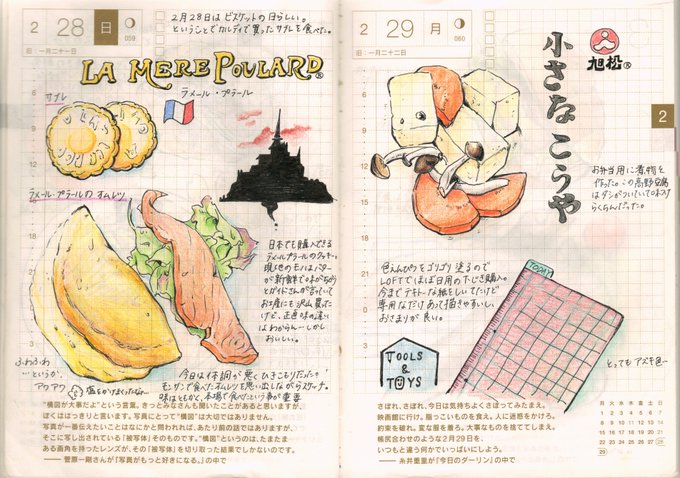 2 28 日 059
旧:一月二十一日
2月28日は ビスケットの日らしい。
ということで カルディで買った サブレを食べた。
LA MERE POULARD®
ラメール・プラール
サブレ
ラメール・プラールの オムレツ
日本でも購入できる
ラメールプラールのクッキー。
現地のモノはバター
が新鮮で味がちがう
とガイドさんが言っていて
お土産にも沢山買った
けど、正直味の違い
はわからん…しかし
おいしい。
ふわふわ
…というか、
アワアワ
塩をかけまくったなー
今日は体調が悪くひきこもりだった。
モンサンで食べたオムレツを思い出しながらスケッチ。
味はともかく、本場で食べたという事が重要
“構図が大事だよ”という言葉。きっとみなさんも聞いたことがあると思いますが、
ぼくははっきりと言います。写真にとって“構図”は大切ではありません。
写真が一番伝えたいことはなにかと問われれば、あたり前の話ではありますが、
そこに写し出されている「被写体」そのものです。“構図”というのは、たまたま
ある画角を持ったレンズが、その「被写体」を切り取った結果でしかないのです。
—— 菅原一剛さんが『写真がもっと好きになる。』の中で
2 29 月 060
旧:一月二十二日
旭松®
小さなこうや
2
お弁当用に煮物を
作った。この高野豆腐
はダシがついていて味つけ
らくちんだった。
色えんぴつをゴリゴリ塗るので
LOFTでほぼ日用の下じき購入。
今までテキトーな紙をしいてたけど
専用なだけあって描きやすいし、
おさまりが良い。
TODAY
TOOLS
&
TOYS
とってもアズキ色…
さぼれ、さぼれ、今日は気持ちよくさぼってみたまえ。
映画館に行け。脂っこいものを食え。人に迷惑かけろ。
約束を破れ。変な服を着ろ。大事なものを捨ててしまえ。
帳尻合わせのような2月29日を、
いつもと違う何かでいっぱいにしよう。
—— 糸井重里が『今日のダーリン』の中で
月 火 水 木 金 土 日
1 2 3 4 5 6 7
8 9 10 11 12 13 14
15 16 17 18 19 20 21
22 23 24 25 26 27 28
29